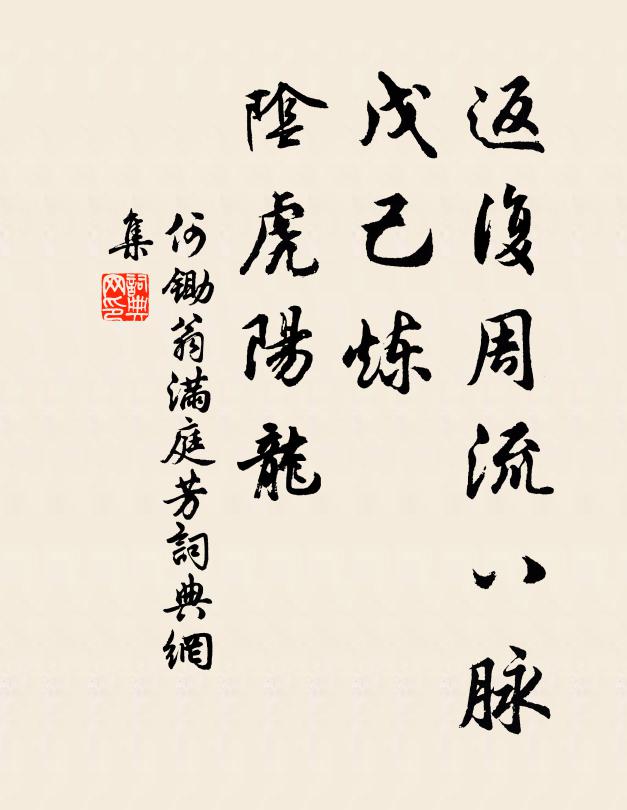 返復周流八脉
戊己炼
陰虎陽龍
何鋤翁滿庭芳詞典網
集
詞典
网印